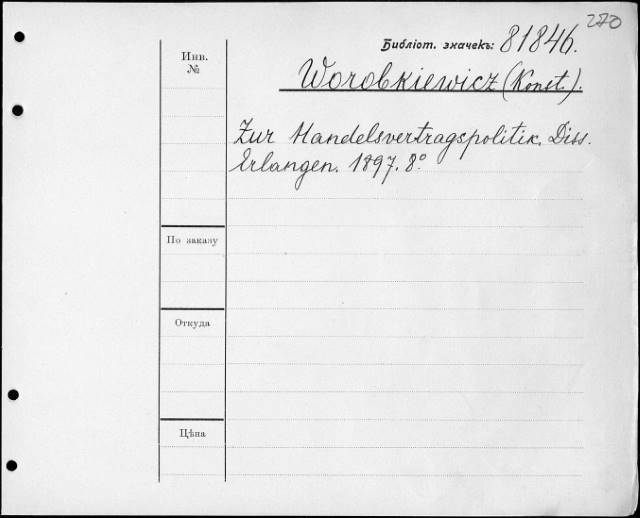 270
Библіот. значекъ: 81846.
Инв.
№
Worobkiewicz (Konst.).
Zur Handelsvertragspolitik. Diss.
Erlangen. 1897. 8°
По заказу
Откуда
Цѣна